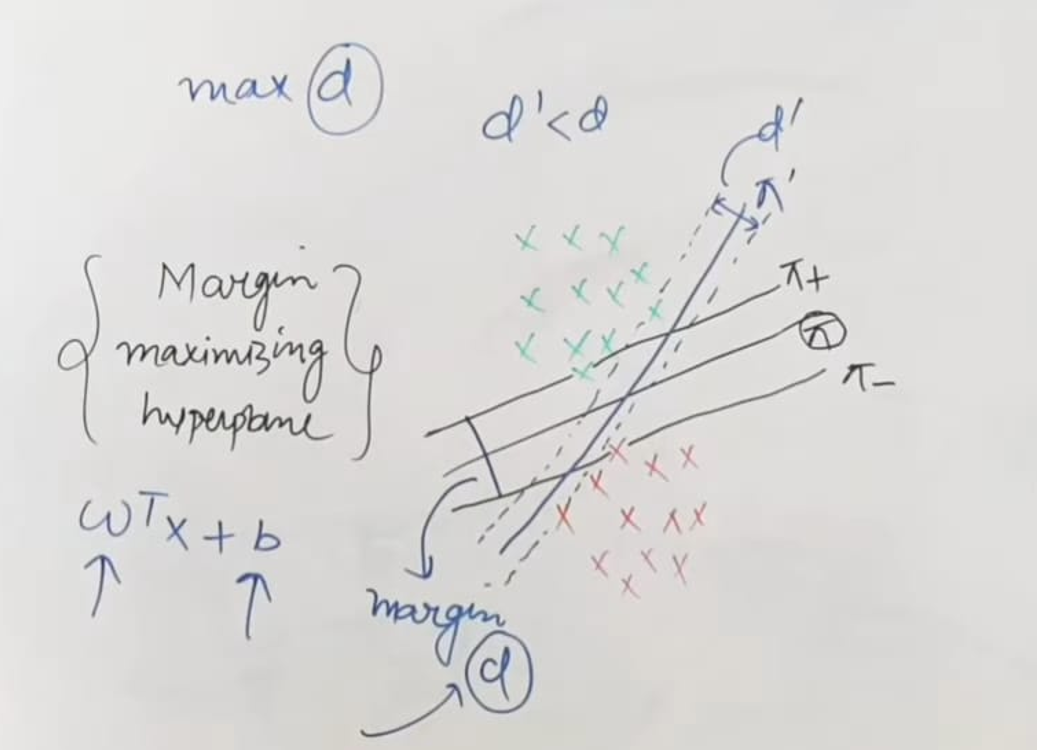 max d
d' < d
d'
π'
π+
π
π-
Margin
maximizing
hyperplane
ωᵀx + b
margin
d